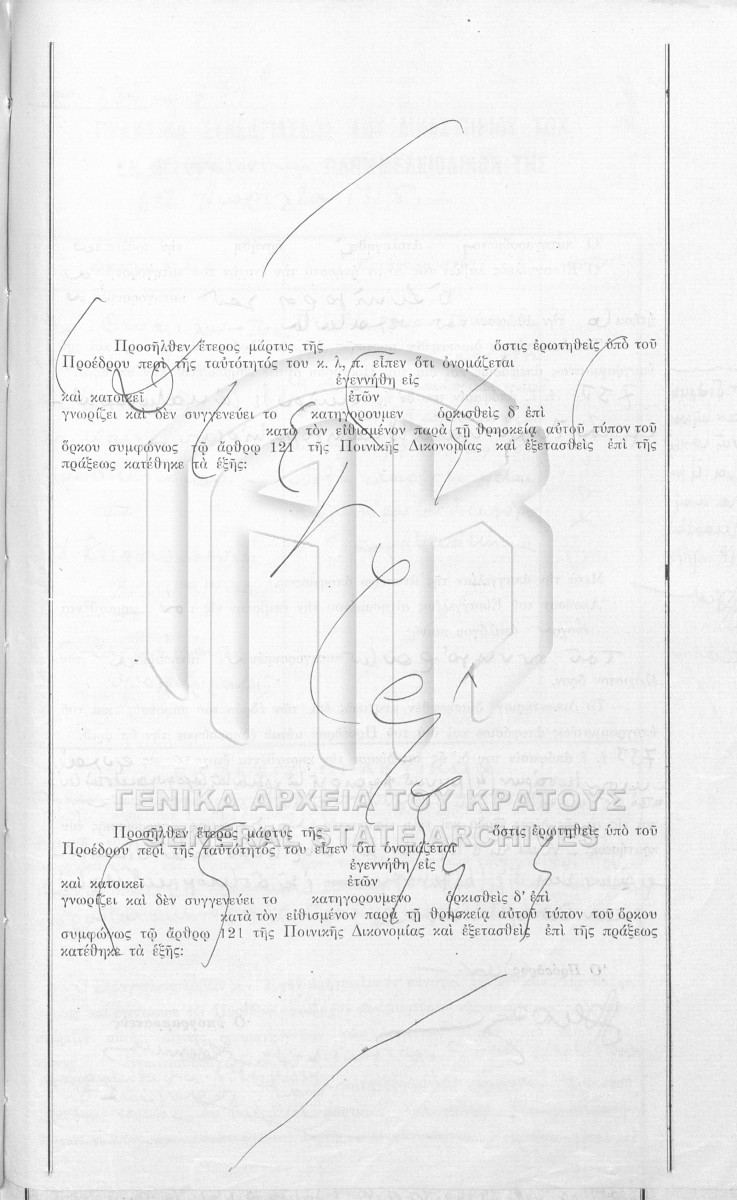 Προσῆλθεν ἕτερος μάρτυς τῆς ὅστις ἐρωτηθεὶς ὑπὸ τοῦ
Προέδρου περὶ τῆς ταὐτότητός του κ. λ, π. εἶπεν ὅτι ὀνομάζεται
ἐγεννήθη εἰς
καὶ κατοικεῖ ἐτῶν
γνωρίζει καὶ δὲν συγγενεύει το κατηγορουμεν ὁρκισθεὶς δ' ἐπὶ
κατὰ τὸν εἰθισμένον παρὰ τῇ θρησκείᾳ αὐτοῦ τύπον τοῦ
ὅρκου συμφώνως τῷ ἄρθρῳ 121 τῆς Ποινικῆς Δικονομίας καὶ ἐξετασθεὶς ἐπὶ τῆς
πράξεως κατέθηκε τὰ ἑξῆς:
ΓΕΝΙΚΑ ΑΡΧΕΙΑ ΤΟΥ ΚΡΑΤΟΥΣ
GENERAL STATE ARCHIVES
Προσῆλθεν ἕτερος μάρτυς τῆς ὅστις ἐρωτηθεὶς ὑπὸ τοῦ
Προέδρου περὶ τῆς ταὐτότητός του εἶπεν ὅτι ὀνομάζεται
ἐγεννήθη εἰς
καὶ κατοικεῖ ἐτῶν
γνωρίζει καὶ δὲν συγγενεύει το κατηγορουμενο ὁρκισθεὶς δ' ἐπὶ
κατὰ τὸν εἰθισμένον παρὰ τῇ θρησκείᾳ αὐτοῦ τύπον τοῦ ὅρκου
συμφώνως τῷ ἄρθρῳ 121 τῆς Ποινικῆς Δικονομίας καὶ ἐξετασθεὶς ἐπὶ τῆς πράξεως
κατέθηκε τὰ ἑξῆς: